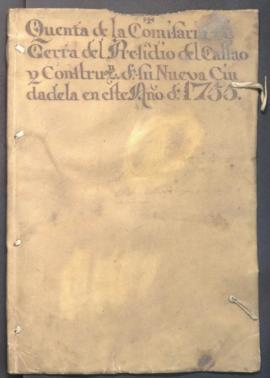 Quenta de la Comisaria de
Gerra del Presidio del Callao
y Construz.n d.e su Nueva Ciu
dadela en este Año d.e 1755.